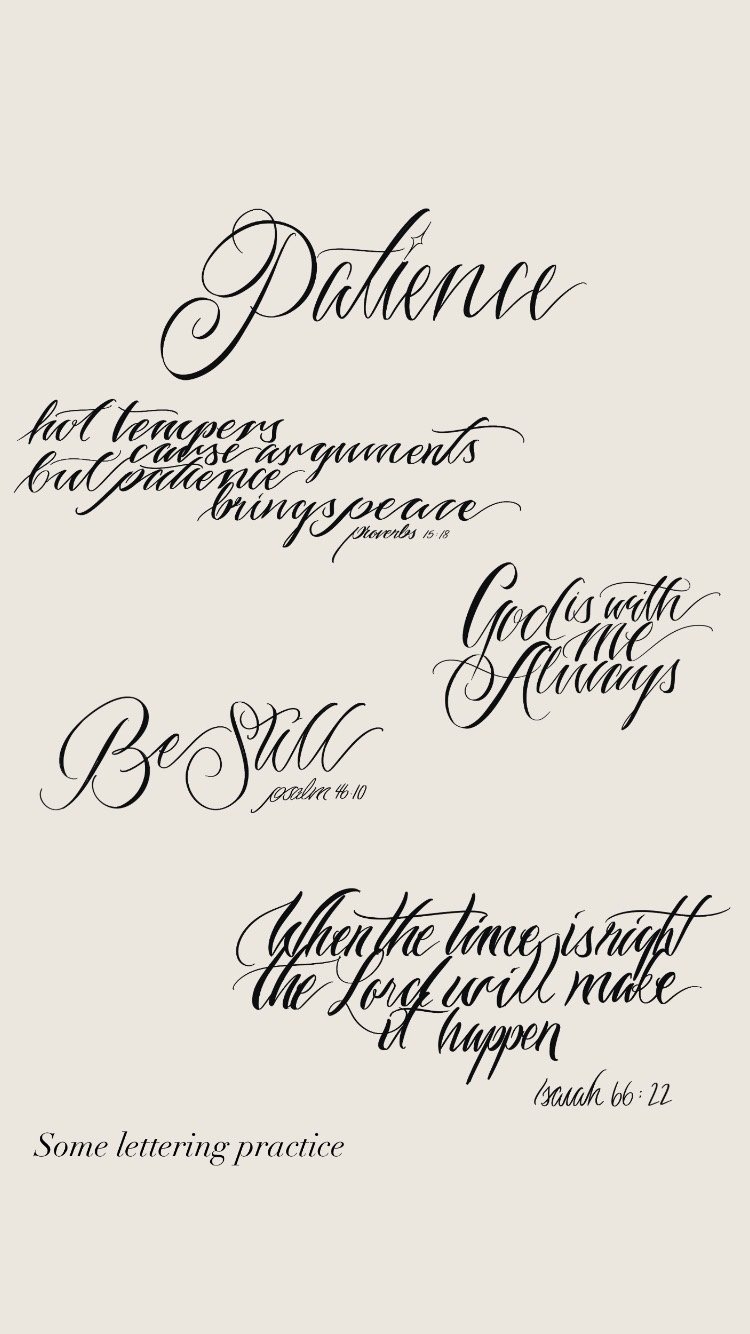 Patience
hot tempers
cause arguments
but patience
brings peace
proverbs 15:18
God is with
me
Always
Be Still
psalm 46:10
When the time is right
the Lord will make
it happen
Isaiah 66:22
Some lettering practice